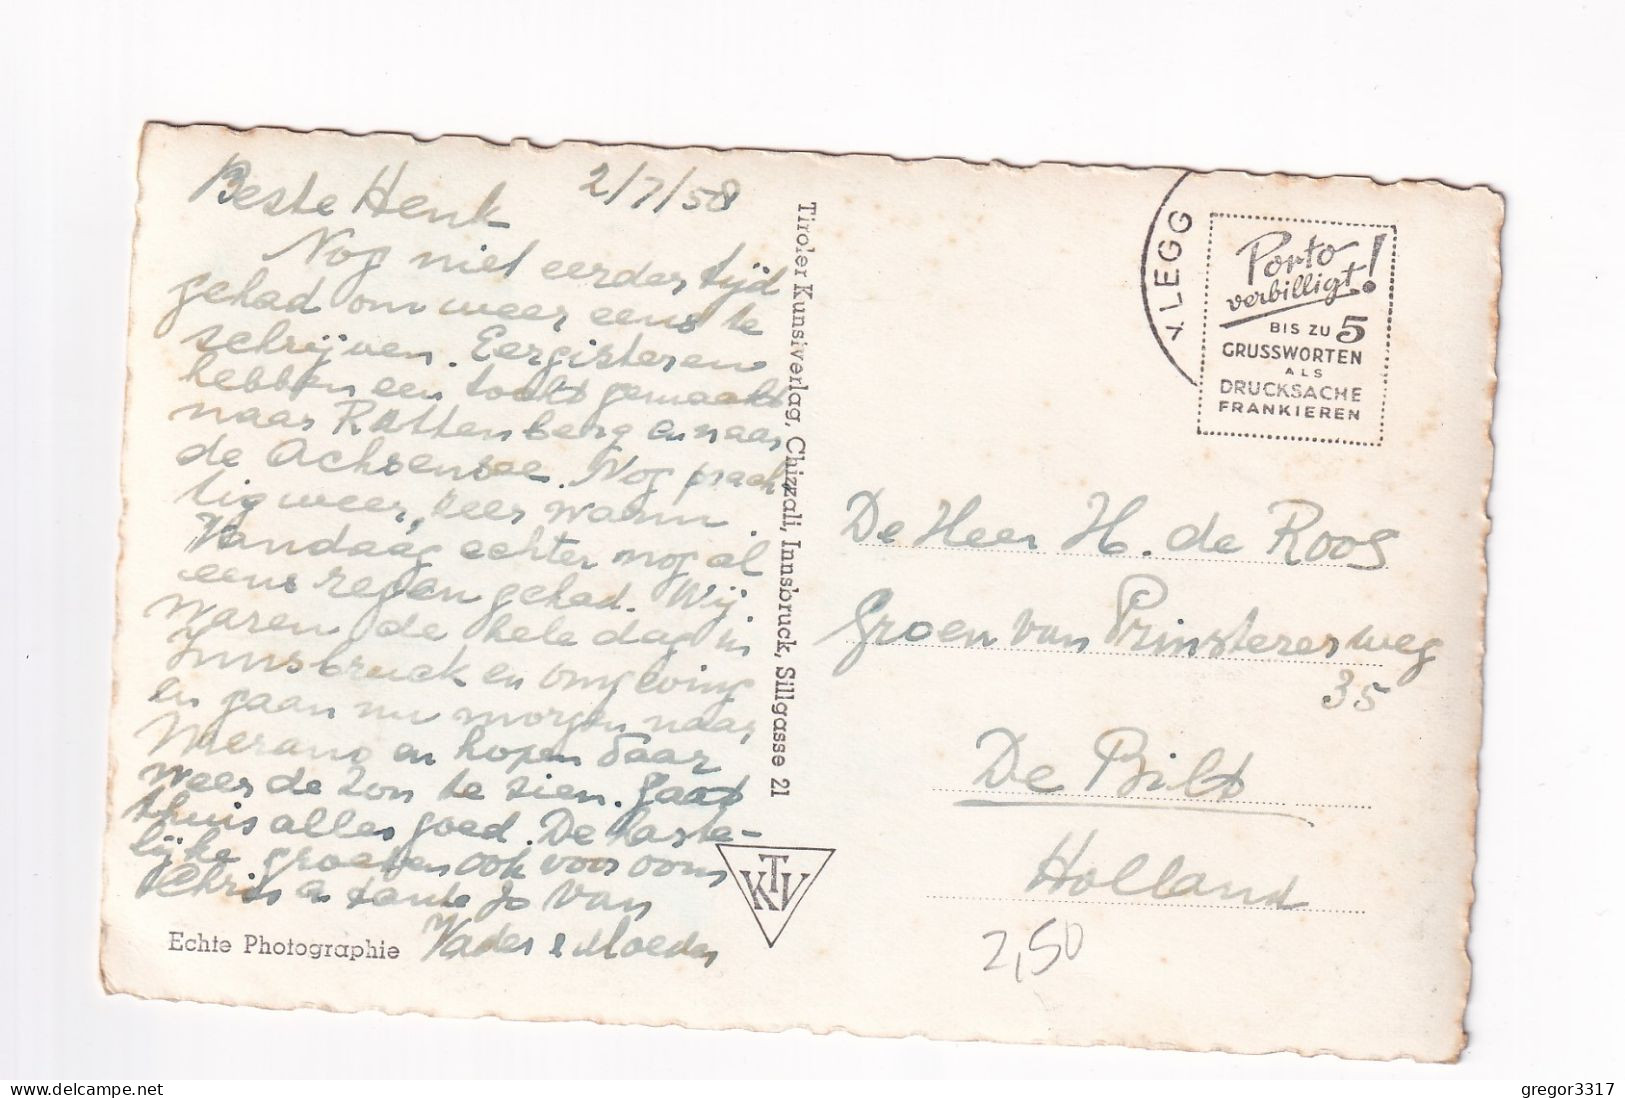 Beste Henk 2/7/58
Nog niet eerder tijd
gehad om weer eens te
schrijven. Eergisteren
hebben een tocht gemaakt
naar Rattenberg en naar
de Achsensee. Nog prach
tig weer, zeer warm.
Vandaag echter nog al
eens regen gehad. Wij
waren de hele dag in
Innsbruck en omgeving
en gaan nu morgen naar
Merano en hopen daar
weer de zon te zien. Gaat
thuis alles goed. De harte-
lijke groeten ook voor oom
Chris en tante Jo van
Vader & Moeder
Echte Photographie
Tiroler Kunstverlag, Chizzali, Innsbruck, Sillgasse 21
KTV
LEGG
Porto
verbilligt!
BIS ZU 5
GRUSSWORTEN
ALS
DRUCKSACHE
FRANKIEREN
De Heer H. de Roos
Groen van Prinstererweg
35
De Bilt
Holland
2,50
gregor3317